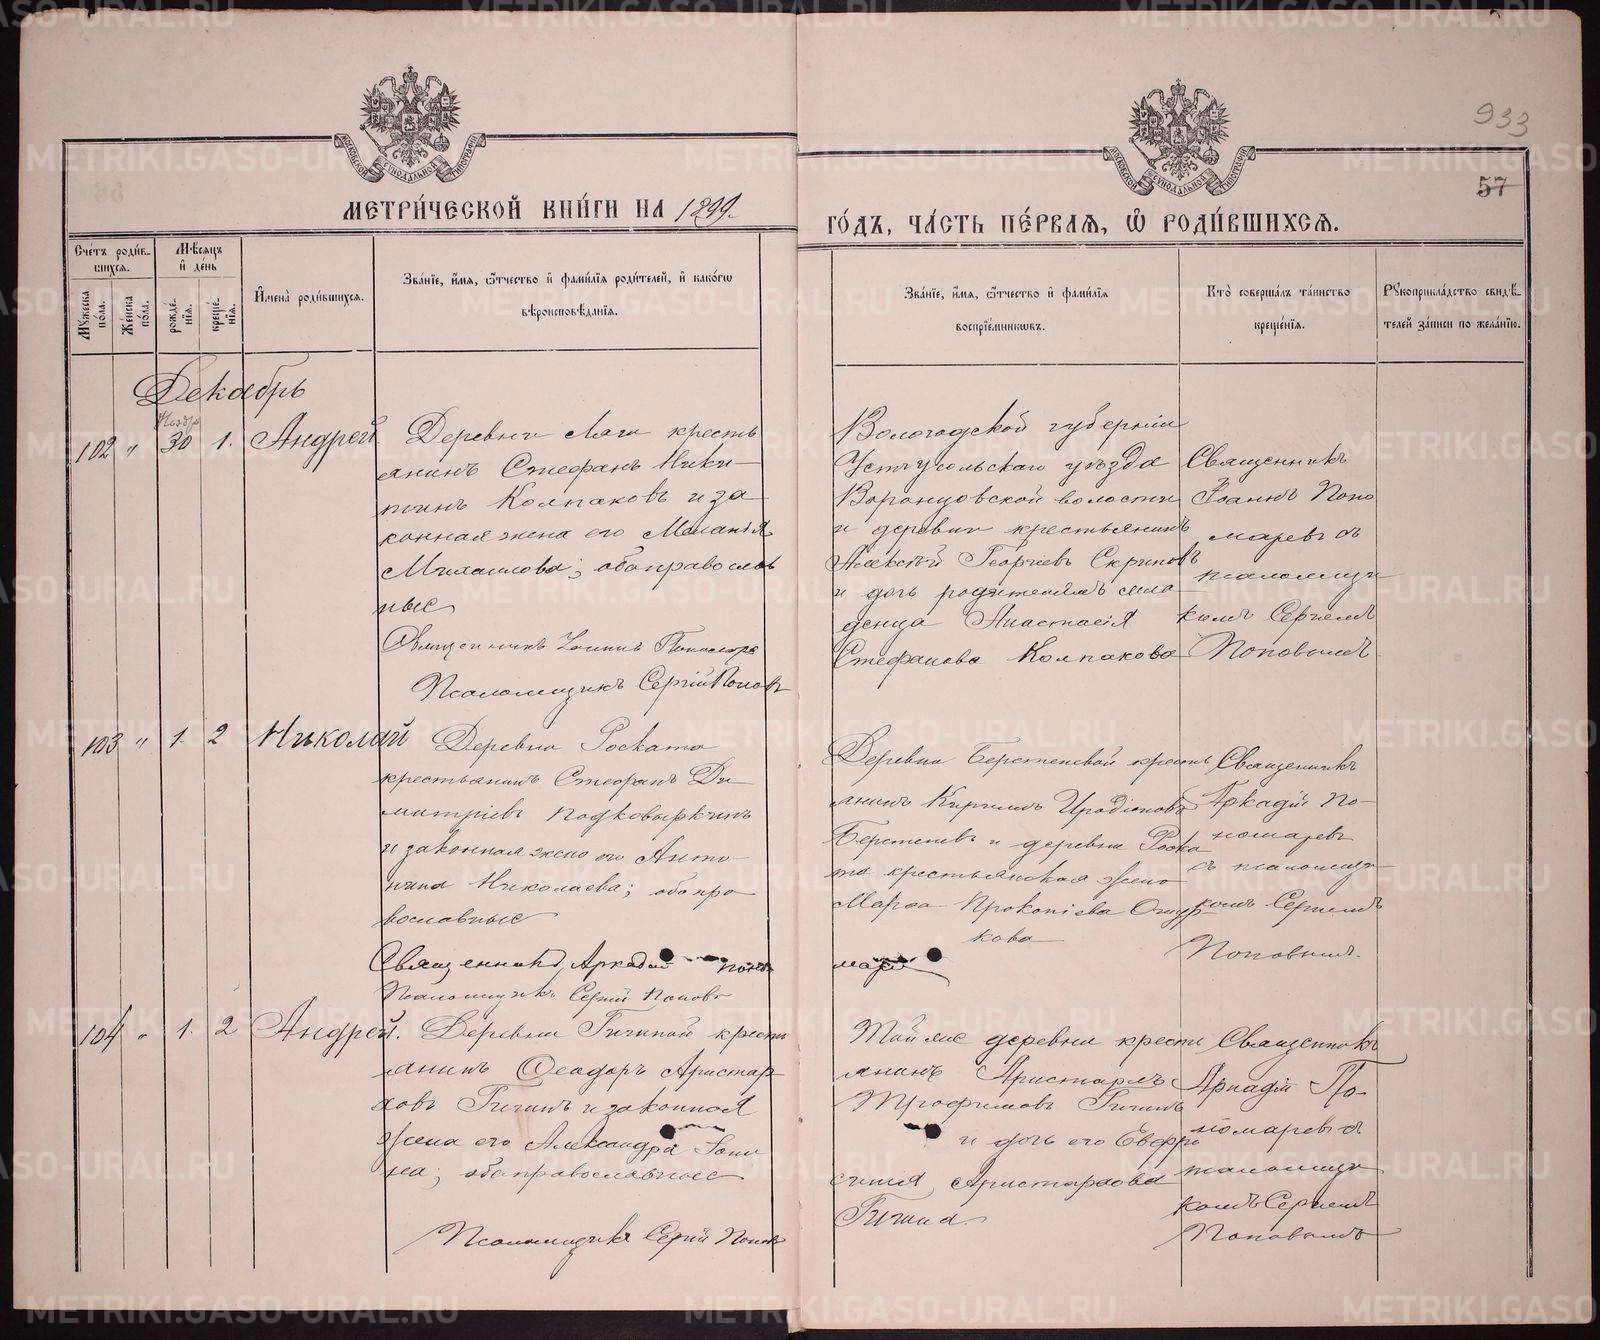 933
57
МЕТРИ́ЧЕСКОЙ КНИ́ГИ НА 1899.
ГО́ДЪ, ЧА́СТЬ ПЕ́РВАЯ, Ѡ҆ РОДИ́ВШИХСЯ.
Сче́тъ роди́вшихся.
Мꙋ́жеска по́ла.
Же́нска по́ла.
Мѣ́сяцъ и҆ де́нь
рожде́нїя.
креще́нїя.
И҆мена̀ роди́вшихся.
Зва́нїе, и҆́мя, ѻ҆́тчество и҆ фами́лїя роди́телей, и҆ како́гѡ
вѣроисповѣ́данїя.
Зва́нїе, и҆́мя, ѻ҆́тчество и҆ фами́лїя
воспрїе́мникѡвъ.
Кто̀ соверша́лъ та́инство
креще́нїя.
Рꙋкоприкла́дство свидѣ́-
телей за́писи по жела́нїю.
Декабрь
Ноябр
102 " 30 1. Андрей
Деревни Ляги кресть
янинъ Стефанъ Ники-
тинъ Колпаковъ и за
конная жена его Меланія
Михаилова; оба православ
ные
Священникъ Іоаннъ Пономаре
Псаломщикъ Сергій Поповъ
Вологодской губерніи
Устьсысольскаго уѣзда
Воронцовской волости
и деревни крестьянинъ
Алексѣй Георгіевъ Скриповъ
и дочь родителямъ мла
денца Анастасія
Стефанова Колпакова
Священникъ
Іоаннъ Поно
маревъ съ
псаломщи
комъ Сергіемъ
Поповымъ
103 " 1. 2 Николай
Деревни Роската
крестьянинъ Стефанъ Ди
митріевъ Подковыркинъ
и законная жена его Анто
нина Николаева; оба пра
вославные
Священникъ Аркадій Поно
Псаломщикъ Сергій Поповъ
Деревни Берстеневой кресть
янинъ Кириллъ Иродіоновъ
Берстеневъ и деревни Роска
та крестьянская жена
Марѳа Прокопіева Ошур
кова
марев
Священникъ
Аркадій По-
номаревъ
съ псаломщи
комъ Сергіемъ
Поповымъ.
104 " 1. 2 Андрей.
Деревни Гичиной кресть
янинъ Ѳеодоръ Аристар
ховъ Гичинъ и законная
жена его Александра
на; оба православные
Псаломщикъ Сергій Поповъ
Той же деревни кресть
янинъ Аристархъ
Трофимовъ Гичинъ
и дочь его Евфро
синія Аристархова
Гичина
Священникъ
Аркадій По-
номаревъ съ
псаломщи
комъ Сергіемъ
Поповымъ
METRIKI.GASO-URAL.RU